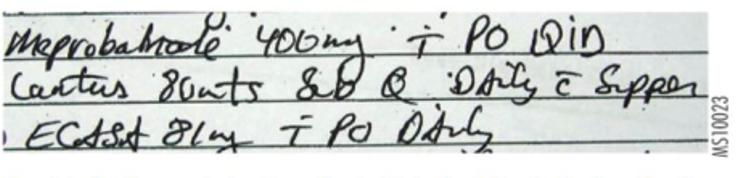 Meprobamate 400mg · i PO QID
Lantus 8 units Sub Q Daily c̄ Supper
ECASA 81mg i PO Daily
MS10023